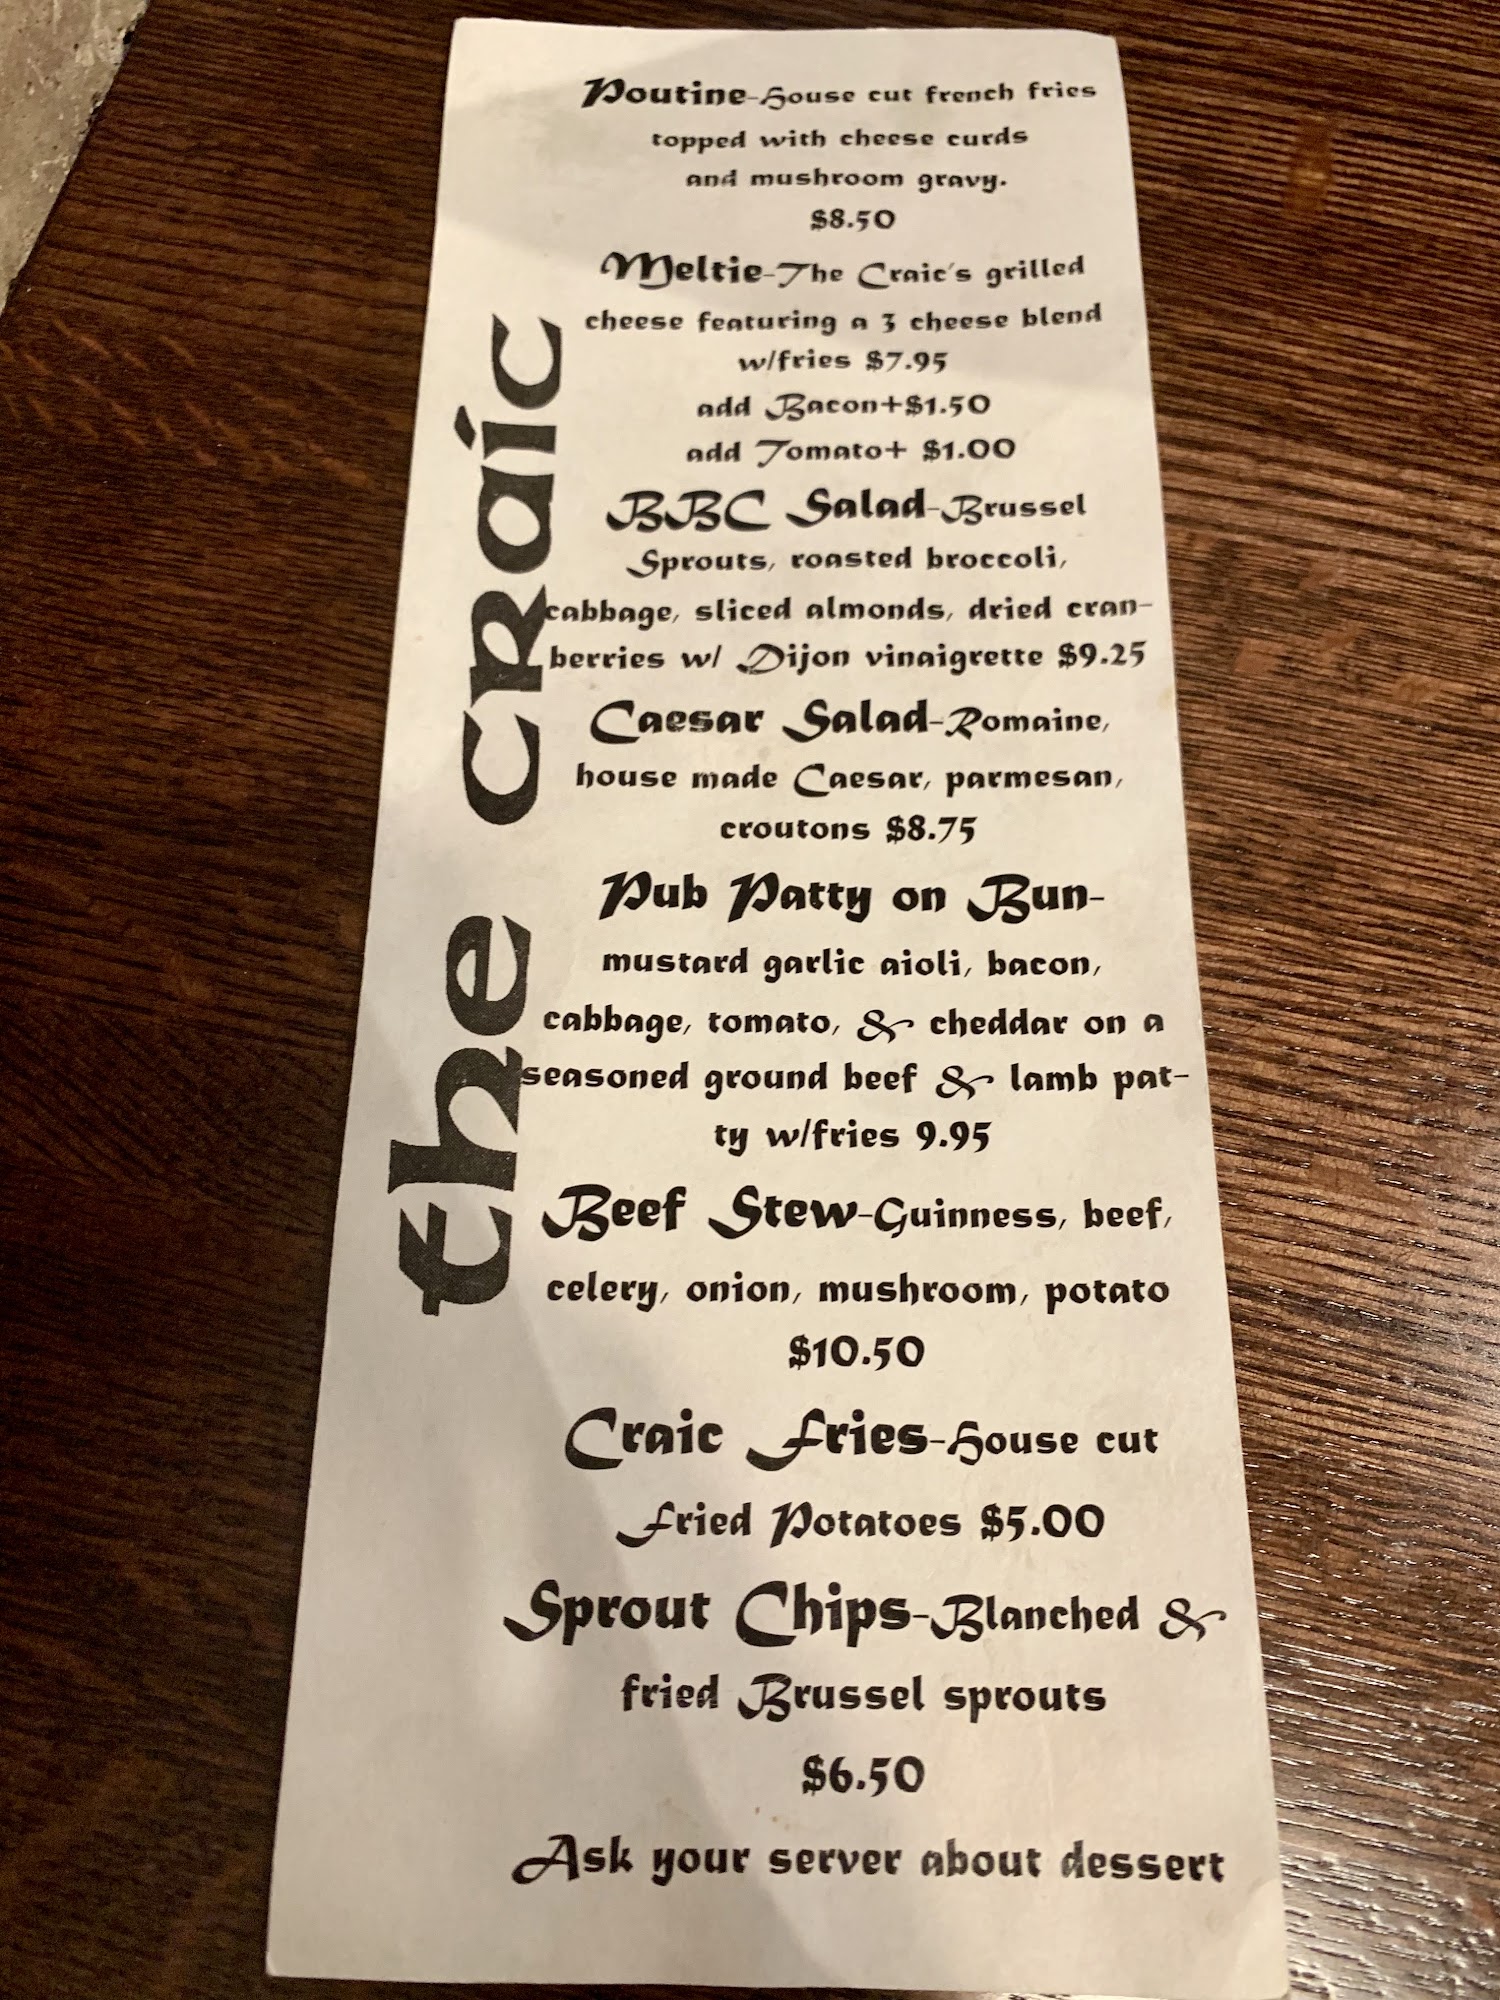 the craic
Poutine-House cut french fries
topped with cheese curds
and mushroom gravy.
$8.50
Meltie-The Craic's grilled
cheese featuring a 3 cheese blend
w/fries $7.95
add Bacon+$1.50
add Tomato+ $1.00
BBC Salad-Brussel
Sprouts, roasted broccoli,
cabbage, sliced almonds, dried cran-
berries w/ Dijon vinaigrette $9.25
Caesar Salad-Romaine,
house made Caesar, parmesan,
croutons $8.75
Pub Patty on Bun-
mustard garlic aioli, bacon,
cabbage, tomato, & cheddar on a
seasoned ground beef & lamb pat-
ty w/fries 9.95
Beef Stew-Guinness, beef,
celery, onion, mushroom, potato
$10.50
Craic Fries-House cut
Fried Potatoes $5.00
Sprout Chips-Blanched &
fried Brussel sprouts
$6.50
Ask your server about dessert